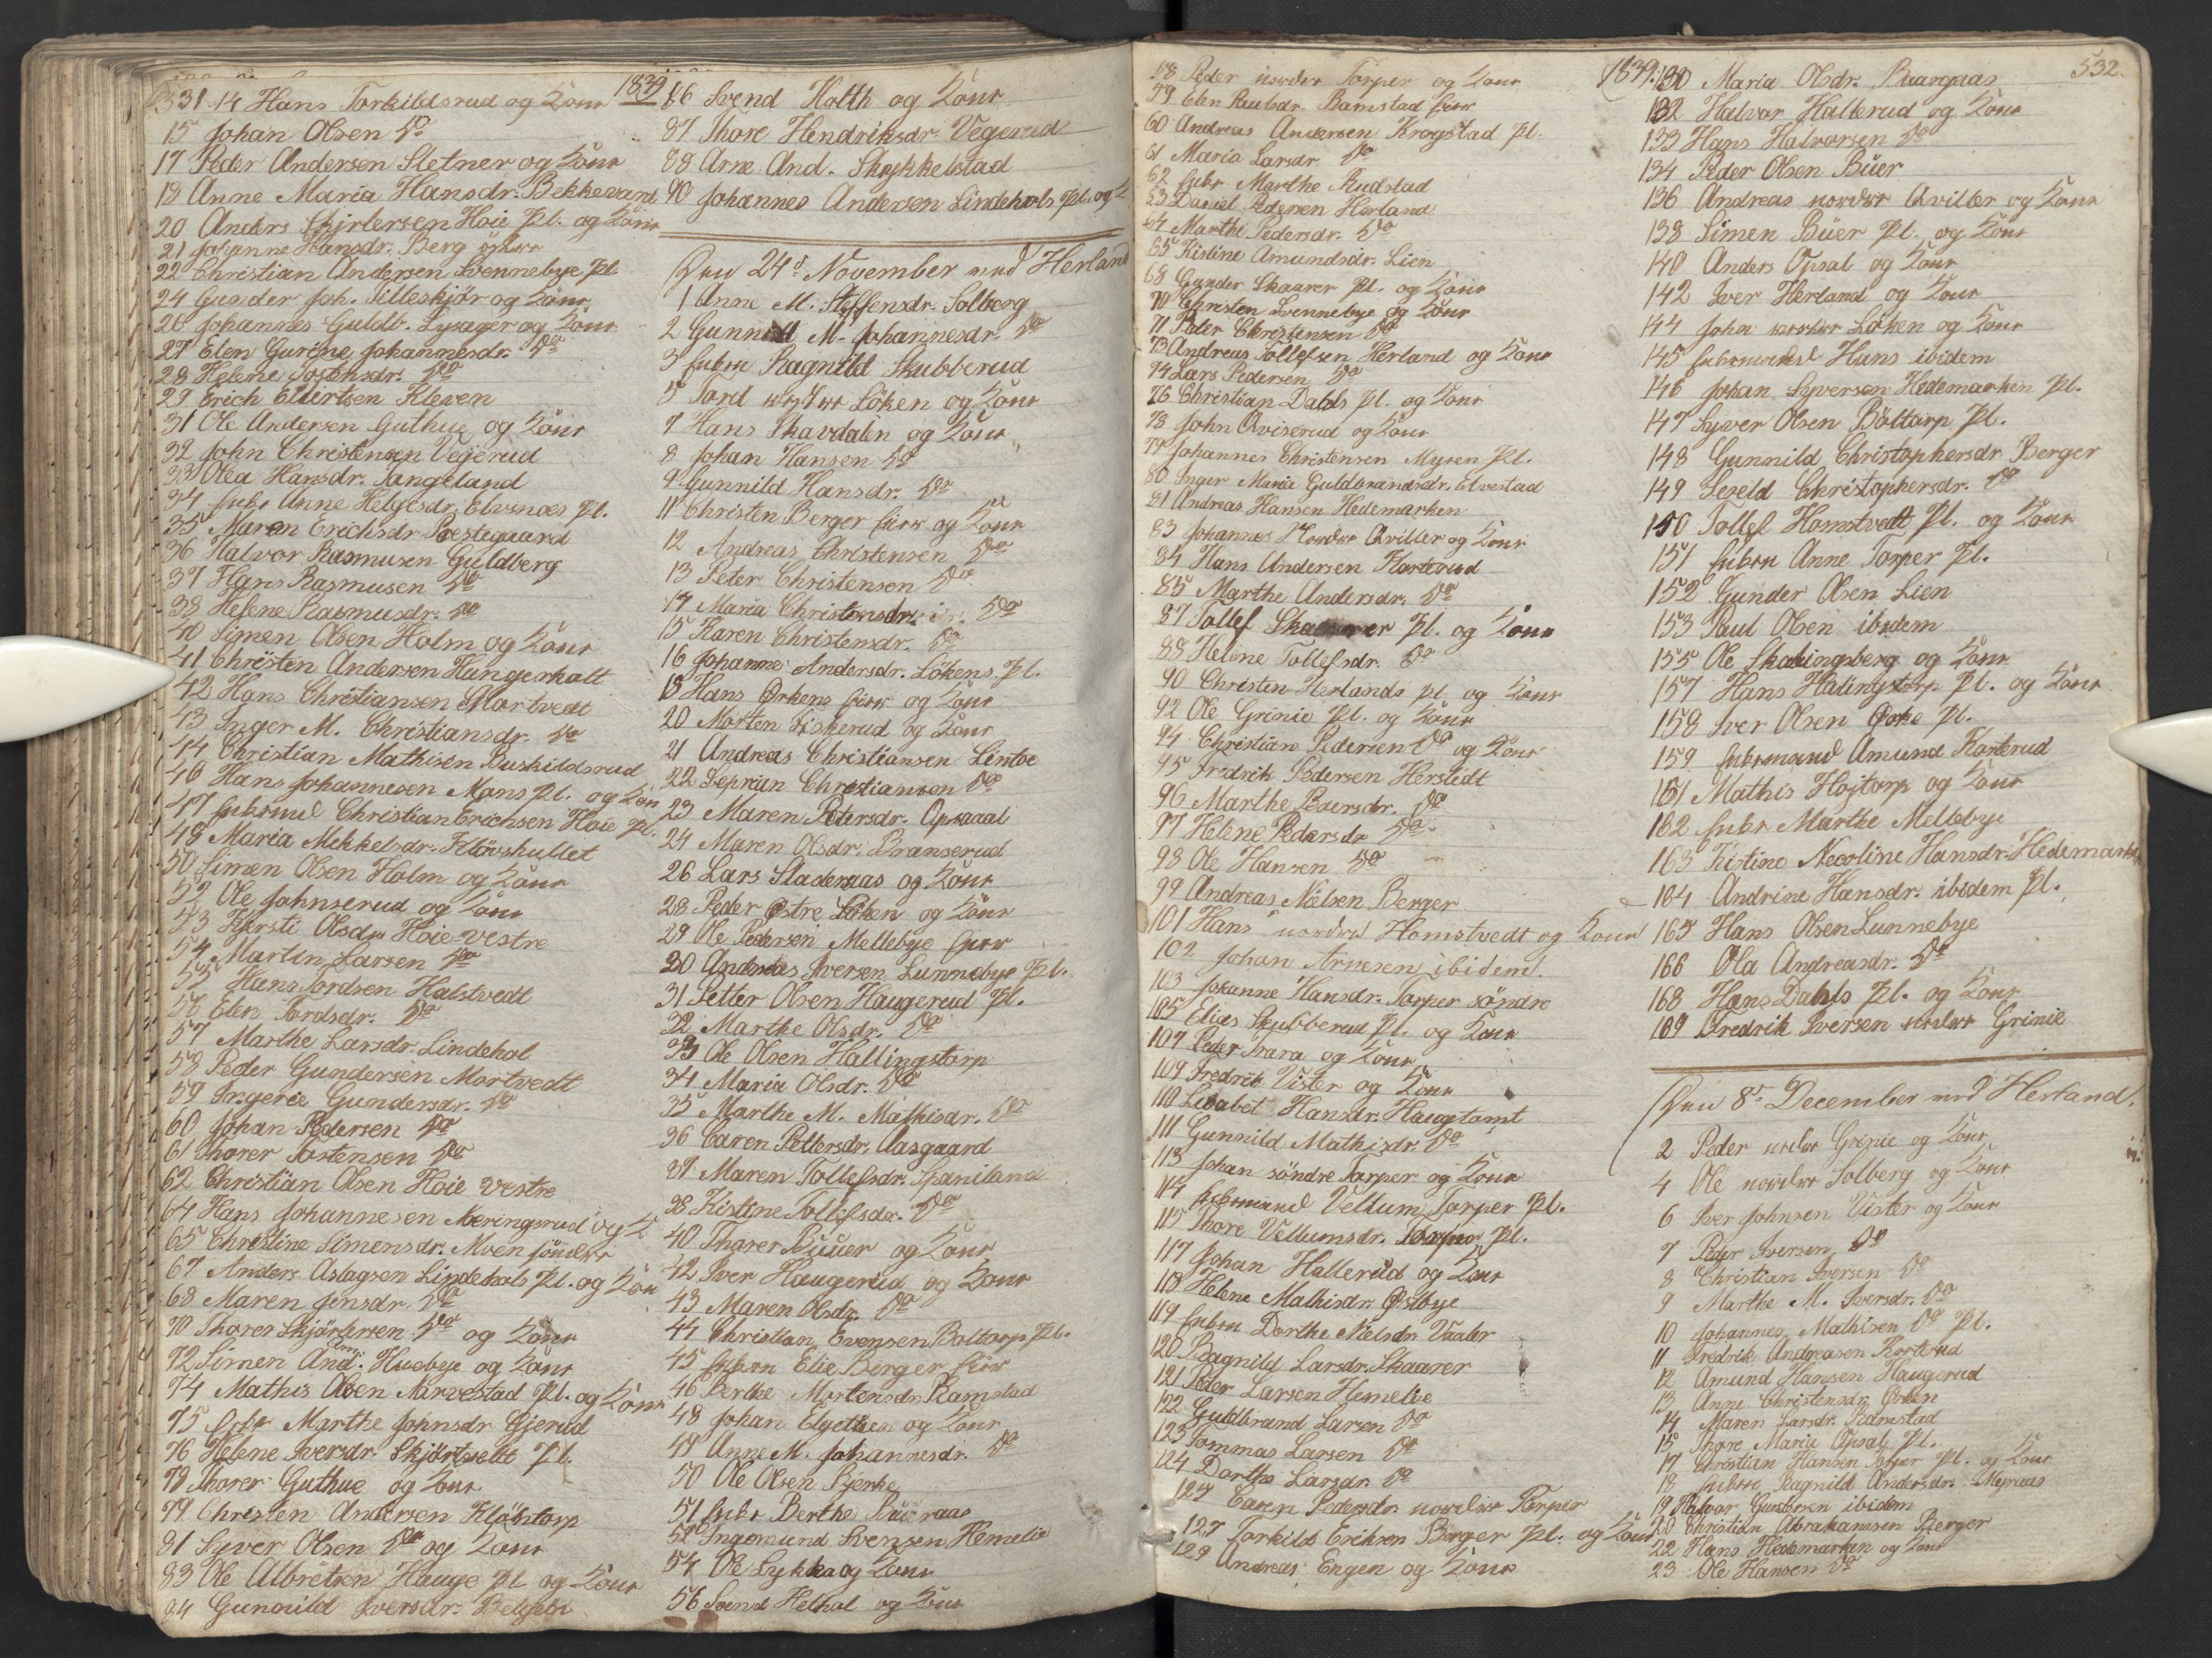 331
14 Hans Torkildsrud og Kone
15 Johan Olsen Do
17 Peder Andersen Sletner og Kone
18 Anne Maria Hansdr. Bekkevand
20 Anders Skjrlersen Hoie Pl. og Kone
21 Johanne Hansdr. Berg
22 Christian Andersen Svennebye Pl.
24 Gunder Joh. Tilleskjör og Kone
26 Johannes Guldb. Lysager og Kone
27 Elen Gurine Johannesdr. Do
28 Helene Tostensdr. Do
29 Erich Elertsen Kleven
31 Ole Andersen Guthue og Kone
32 John Christensen Vegerud
33 Olea Hansdr. Tangeland
34 Enke Anne Helgesdr. Elvenæs Pl.
35 Maren Erichsdr. Præstegaard
36 Halvor Rasmusen Guldberg
37 Hans Rasmusen Do
38 Helene Rasmusdr. Do
40 Simen Olsen Holm og Kone
41 Christen Andersen Hungerholt
42 Hans Christiansen Mortvedt
43 Inger M. Christiansdr. Do
44 Christian Mathisen Buskildsrud
46 Hans Johannesen Mons Pl. og Kon
47 Enkemd Christian Erichsen Hoie Pl.
48 Maria Mekkelsdr. Klövshullet
50 Simen Olsen Holm og Kone
52 Ole Johnserud og Kone
53 Kjersti Olsdr. Hoie vestre
54 Martin Larsen Do
55 Hans Tordsen Halstvedt
56 Elen Tordsdr. Do
57 Marthe Larsdr. Lindehol
58 Peder Gundersen Mortvedt
59 Ingeria Gundersdr. Do
60 Johan Pedersen Do
61 Thorer Tostensen Do
62 Christian Olsen Hoie vestre
64 Hans Johannesen Næringsrud og K
65 Christine Simensdr. Moen
67 Anders Aslagsen Lindehols Pl. og Kon
68 Maren Jensdr. Do
70 Thorer Skjörtersen Do og Kone
72 Simen And. Huebye og Kone
74 Mathis Olsen Narvestad Pl. og Kone
75 Enke Marthe Johnsdr. Gjerud
76 Helene Iversdr. Skjörtvelt Pl.
78 Thorer Guthue og Kone
79 Christen Andersen Klöstorp
81 Syver Olsen Do og Kone
83 Ole Albretsen Hauge Pl. og Kone
84 Gunnild Iversdr.
1839
86 Svend Holth og Kone
87 Thore Hendriksdr. Vegerud
88 Arne And. Skrikkelstad
90 Johannes Andersen Lindehols Pl. og K
Den 24d November ved Herland
1 Anne M. Steffensdr. Solberg
2 Gunnild M. Johannesdr. Do
3 Enken Ragnild Skubberud
5 Tord Löken og Kone
7 Hans Skavdalen og Kone
8 Johan Hansen Do
9 Gunnild Hansdr. Do
11 Christen Berger og Kone
12 Andreas Christensen Do
13 Peter Christensen Do
14 Maria Christensdr. Do
15 Karen Christensdr. Do
16 Johanne Andersdr. Lökens Pl.
18 Hans Ørkens og Kone
20 Morten Fiskerud og Kone
21 Andreas Christiansen Lintoe
22 Seprian Christiansen Do
23 Maren Petersdr. Opsaaal
24 Maren Olsdr. Pranserud
26 Lars Staderaas og Kone
28 Peder Østre Löken og Kone
29 Ole Pedersen Mellebye
30 Andreas Iversen Lunnebye Pl.
31 Petter Olsen Haugerud Pl.
32 Marthe Olsdr. Do
33 Ole Olsen Hallingstorp
34 Maria Olsdr. Do
35 Marthe M. Mathisdr. Do
36 Caren Pettersdr. Aasgaard
37 Maren Tollefsdr. Spaniland
38 Kistine Tollefsdr. Do
40 Thorer Buuer og Kone
42 Iver Haugerud og Kone
43 Maren Olsdr. Do
44 Christian Evensen Boltorp Pl.
45 Enken Elie Berger
46 Berthe Mortensdr. Ramstad
48 Johan Elgethun og Kone
49 Anne M. Johannesdr. Do
50 Ole Olsen Bjerke
51 Enke Berthe Bueraas
52 Ingemund Svensen Hemelie
54 Ole Lykka og Kone
56 Svend Helhol og Kone
58 Peder nordre Torper og Kone
59 Elen Paulsdr. Ramstad
60 Andreas Andersen Krogstad Pl.
61 Maria Larsdr. Do
62 Enke Marthe Rudstad
63 Daniel Pedersen Herland
64 Marthe Pedersdr. Do
65 Kistine Amundsdr. Lien
68 Gunder Skaarer Pl. og Kone
70 Christen Svennebye og Kone
71 Peder Christensen Do
73 Andreas Tollefsen Herland og Kone
74 Lars Pedersen Do
76 Christian Dahls Pl. og Kone
78 John Qviserud og Kone
79 Johannes Christensen Mysen Pl.
80 Inger Maria Guldbrandsdr. Elvestad
81 Andreas Hansen Hedemarken
83 Johannes Nordre Qviller og Kone
84 Hans Andersen Korterud
85 Marthe Andersdr. Do
87 Tollef Skaarer Pl. og Kone
88 Helene Tollefsdr. Do
90 Christen Herlands pl. og Kone
92 Ole Grinie Pl. og Kone
94 Christian Pedersen Do og Kone
95 Fredrik Pedersen Herstedt
96 Marthe Pedersdr. Do
97 Helene Pedersdr. Do
98 Ole Hansen Do
99 Andreas Nielsen Berger
101 Hans nordre Homstvedt og Kone
102 Johan Arnesen ibidem.
103 Johanne Hansdr. Torper söndre
105 Elias Skubberud Pl. og Kone
107 Peder Trara og Kone
109 Fredrik Vister og Kone
110 Lisabet Hansdr. Haugtomt
111 Gunnild Mathisdr. Do
113 Johan söndre Torper og Kone
114 Enkemand Vellum Torper Pl.
115 Thore Vellumsdr. Torper Pl.
117 Johan Hallerud og Kone
118 Helene Mathisdr. Østbye
119 Enken Dorthe Nielsdr. Vaaler
120 Ragnild Larsdr. Skaarer
121 Peder Larsen Hemelie
122 Guldbrand Larsen Do
123 Tommas Larsen Do
124 Dorthe Larsdr. Do
125 Caren Pedersdr. nordre Torper
127 Torkild Eriksen Berger Pl. og Kone
129 Andreas Engen og Kone
1839.
532.
130 Maria Olsdr. Buargaas
132 Halvor Hallerud og Kone
133 Hans Halvorsen Do
134 Peder Olsen Büer
136 Andreas nordre Qviller og Kone
138 Simen Büer Pl. og Kone
140 Anders Opsal og Kone
142 Iver Herland og Kone
144 John Löken og Kone
145 Enkemand Hans ibidem
146 Johan Syversen Hedemarken Pl.
147 Syver Olsen Böltorp Pl.
148 Gunnild Christophersdr. Berger
149 Seseld Christophersdr. Do
150 Tollef Homstvedt Pl. og Kone
151 Enken Anne Torper Pl.
152 Gunder Olsen Lien
153 Paul Olsen ibidem
155 Ole Skalingsberg og Kone
157 Hans Halingstorp Pl. og Kone
158 Iver Olsen Pl.
159 Enkemand Amund Korterud
161 Mathis Hojtorp og Kone
162 Enke Marthe Mellebye
163 Kistine Necoline Hansdr. Hedemarken
164 Andrine Hansdr. ibidem Pl.
165 Hans Olsen Lunnebye
166 Ola Andreasdr. Do
168 Hans Dahls Pl. og Kone
169 Fredrik Iversen Grinie
Den 8d December ved Herland.
2 Peder Grinie og Kone
4 Ole nordre Solberg og Kone
6 Iver Johnsen Vister og Kone
7 Peder Iversen Do
8 Christian Iversen Do
9 Marthe M. Iversdr. Do
10 Johannes Mathisen Do Pl.
11 Fredrik Andreasen Korterud
12 Amund Hansen Haugerud
13 Anne Christensdr.
14 Maren Larsdr. Ramstad
15 Thore Maria Opsal Pl.
17 Christian Hansen Torper Pl. og Kone
18 Enken Ragnild Andersdr. Myraas
19 Halvor Gundersen ibidem
20 Christian Abrahamsen Berger
22 Hans Hedemarken og Kone
23 Ole Hansen Do